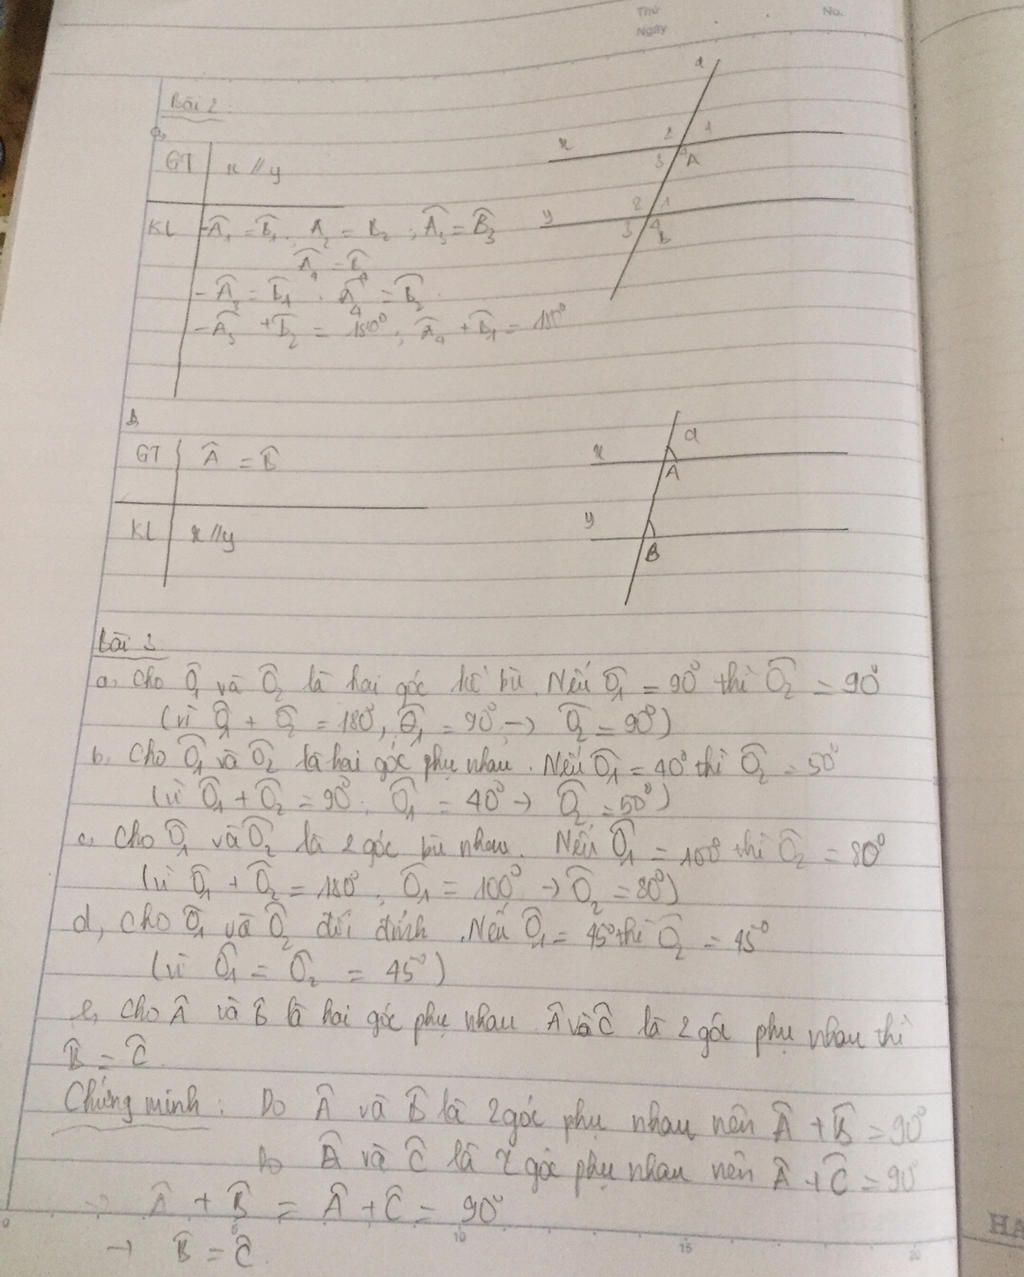 Thứ
Ngày
No.
Bài 2
a,
GT x // y
KL -Â₁ = B̂₁, A₂ = B₂, Â₃ = B̂₃
Â₄ = B̂₄
- Â₃ = B̂₁, Â₄ = B̂₂
- Â₃ + B̂₂ = 180°, Â₄ + B̂₁ = 180°
a
x 2 1
3 4 A
y 2 1
3 4 B
b
GT Â = B̂
KL x // y
a
x A
y B
Bài 3
a, Cho Ô₁ và Ô₂ là hai góc kề bù. Nếu Ô₁ = 90° thì Ô₂ = 90°
(vì Ô₁ + Ô₂ = 180°, Ô₁ = 90° → Ô₂ = 90°)
b, Cho Ô₁ và Ô₂ là hai góc phụ nhau. Nếu Ô₁ = 40° thì Ô₂ = 50°
(vì Ô₁ + Ô₂ = 90°, Ô₁ = 40° → Ô₂ = 50°)
c, Cho Ô₁ và Ô₂ là 2 góc bù nhau. Nếu Ô₁ = 100° thì Ô₂ = 80°
(vì Ô₁ + Ô₂ = 180°, Ô₁ = 100° → Ô₂ = 80°)
d, Cho Ô₁ và Ô₂ đối đỉnh. Nếu Ô₁ = 45° thì Ô₂ = 45°
(vì Ô₁ = Ô₂ = 45°)
e, Cho Â và B̂ là hai góc phụ nhau Â và Ĉ là 2 góc phụ nhau thì
B̂ = Ĉ
Chứng minh: Do Â và B̂ là 2 góc phụ nhau nên Â + B̂ = 90°
Do Â và Ĉ là 2 góc phụ nhau nên Â + Ĉ = 90°
→ Â + B̂ = Â + Ĉ = 90°
→ B̂ = Ĉ.
0 5 10 15 20
HA